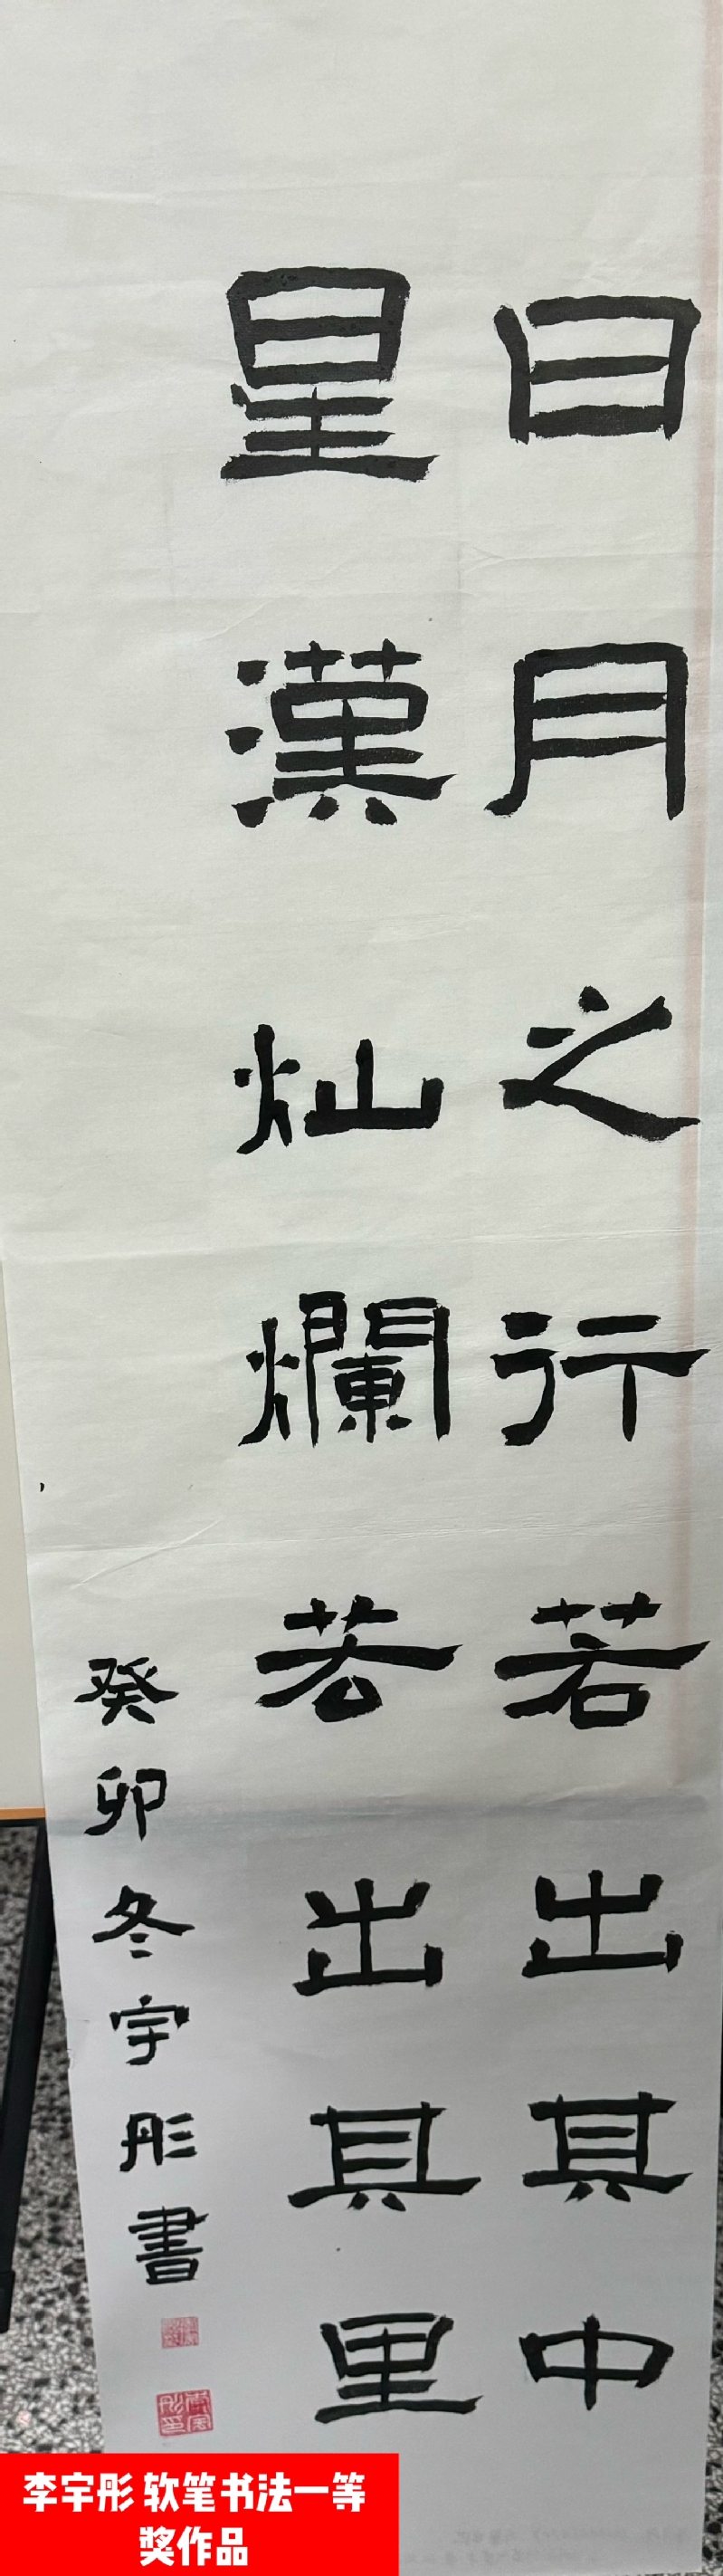 日月之行若出其中
星漢灿爛若出其里
癸卯冬宇彤書
李宇彤 软笔书法一等
奖作品